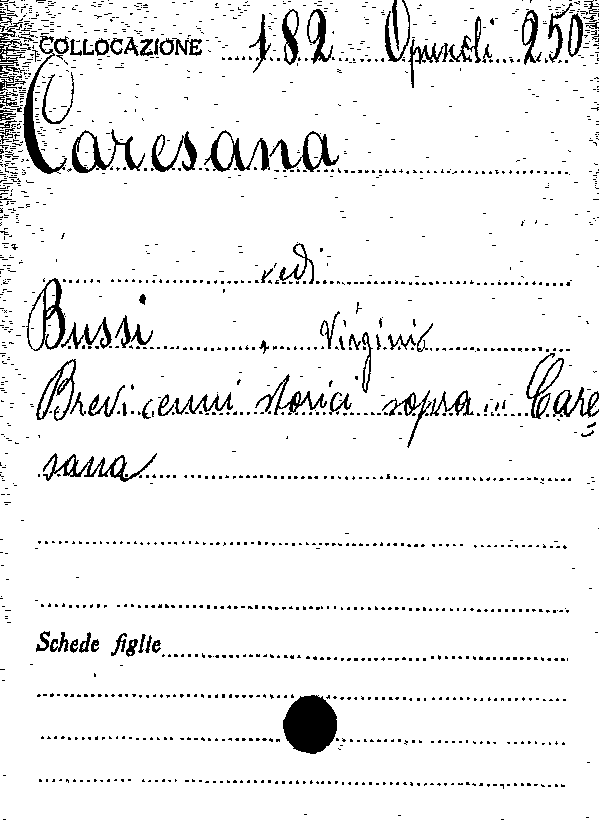 COLLOCAZIONE 182 Opuscoli 250
Caresana
vedi
Bussi , Virginio
Brevi cenni storici sopra ... Care=
sana
Schede figlie